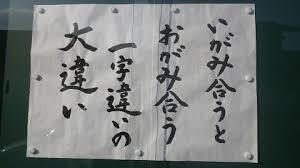 いがみ合うと
おがみ合う
一字違いの
大違い